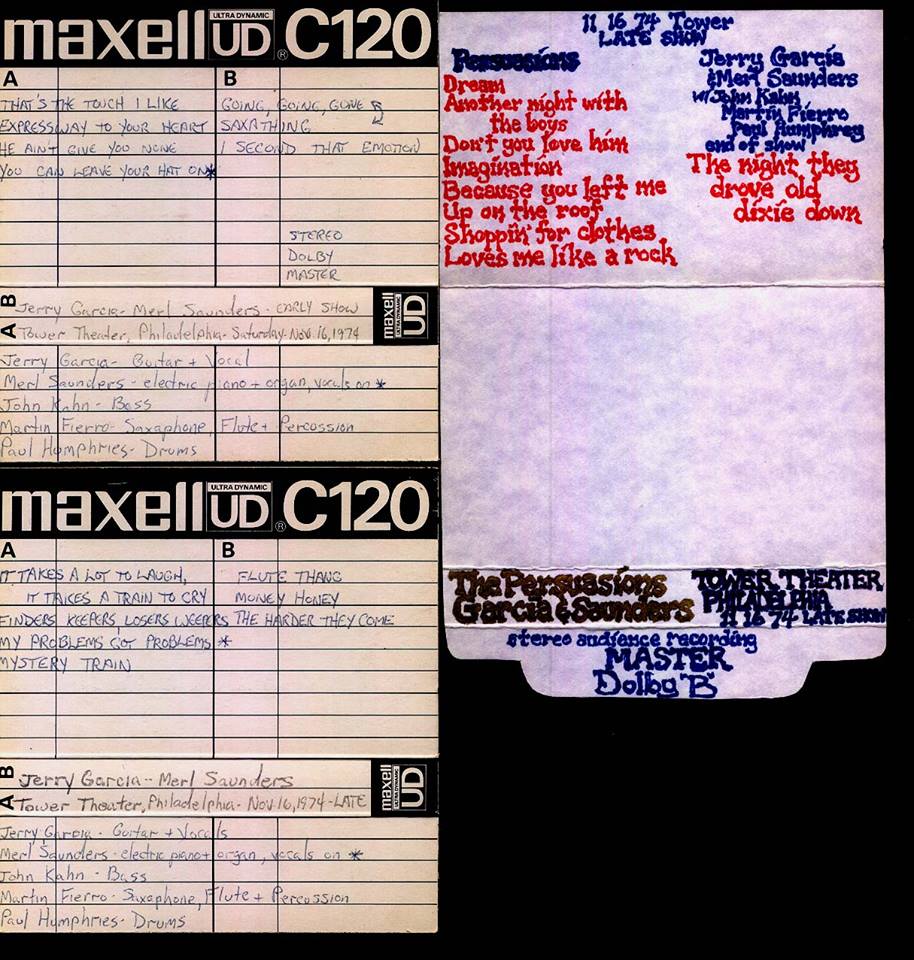 maxell ULTRA DYNAMIC UD ® C120
A
THAT'S THE TOUCH I LIKE
EXPRESSWAY TO YOUR HEART
HE AINT GIVE YOU NONE
YOU CAN LEAVE YOUR HAT ON*
B
GOING, GOING, GONE
SAXATHING
I SECOND THAT EMOTION
STEREO
DOLBY
MASTER
A B
Jerry Garcia - Merl Saunders - EARLY SHOW
Tower Theater, Philadelphia - Saturday - Nov. 16, 1974
maxell ULTRA DYNAMIC UD
Jerry Garcia - Guitar + Vocal
Merl Saunders - electric piano + organ, vocals on *
John Kahn - Bass
Martin Fierro - Saxaphone, Flute + Percussion
Paul Humphries - Drums
maxell ULTRA DYNAMIC UD ® C120
A
IT TAKES A LOT TO LAUGH,
IT TAKES A TRAIN TO CRY
FINDERS KEEPERS LOSERS WEEPERS
MY PROBLEMS GOT PROBLEMS *
MYSTERY TRAIN
B
FLUTE THANG
MONEY HONEY
THE HARDER THEY COME
A B
Jerry Garcia - Merl Saunders
Tower Theater, Philadelphia - Nov 16, 1974 - LATE
maxell ULTRA DYNAMIC UD
Jerry Garcia - Guitar + Vocals
Merl Saunders - electric piano + organ, vocals on *
John Kahn - Bass
Martin Fierro - Saxophone, Flute + Percussion
Paul Humphries - Drums
11 16 74 Tower
LATE SHOW
Persuasions
Dream
Another night with
the boys
Don't you love him
Imagination
Because you left me
Up on the roof
Shoppin' for clothes
Loves me like a rock
Jerry Garcia
& Merl Saunders
w/John Kahn
Martin Fierro
Paul Humphrey
end of show
The night they
drove old
dixie down
The Persuasions
Garcia & Saunders
TOWER THEATER
PHILADELPHIA
11 16 74 LATE SHOW
stereo audience recording
MASTER
Dolby "B"